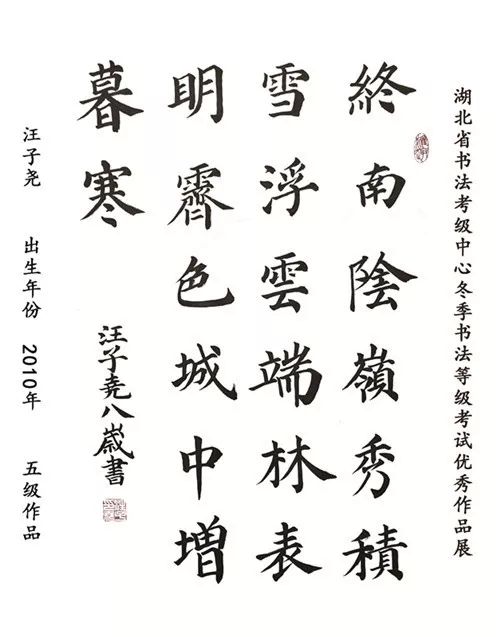 湖北省书法考级中心冬季书法等级考试优秀作品展
終南陰嶺秀積
雪浮雲端林表
明霽色城中增
暮寒
汪子堯八歲書
汪子尧 出生年份 2010年 五级作品